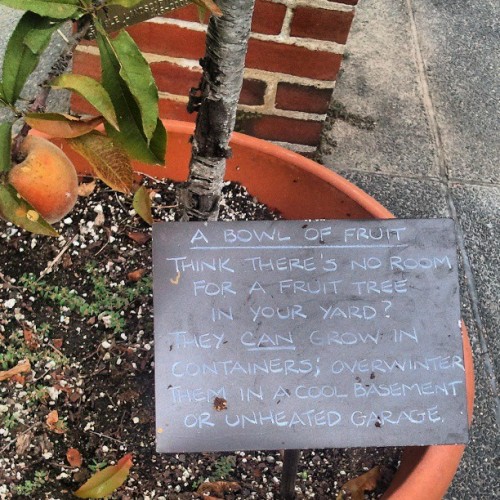 A BOWL OF FRUIT
THINK THERE'S NO ROOM
FOR A FRUIT TREE
IN YOUR YARD?
THEY CAN GROW IN
CONTAINERS; OVERWINTER
THEM IN A COOL BASEMENT
OR UNHEATED GARAGE.